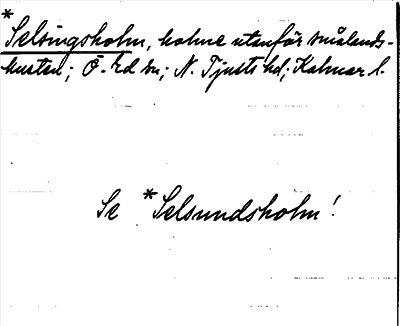 *
Selsingsholm, holme utanför smålands-
kusten; Ö. Ed sn; N. Tjusts hd; Kalmar l.
Se *Selsundsholm!